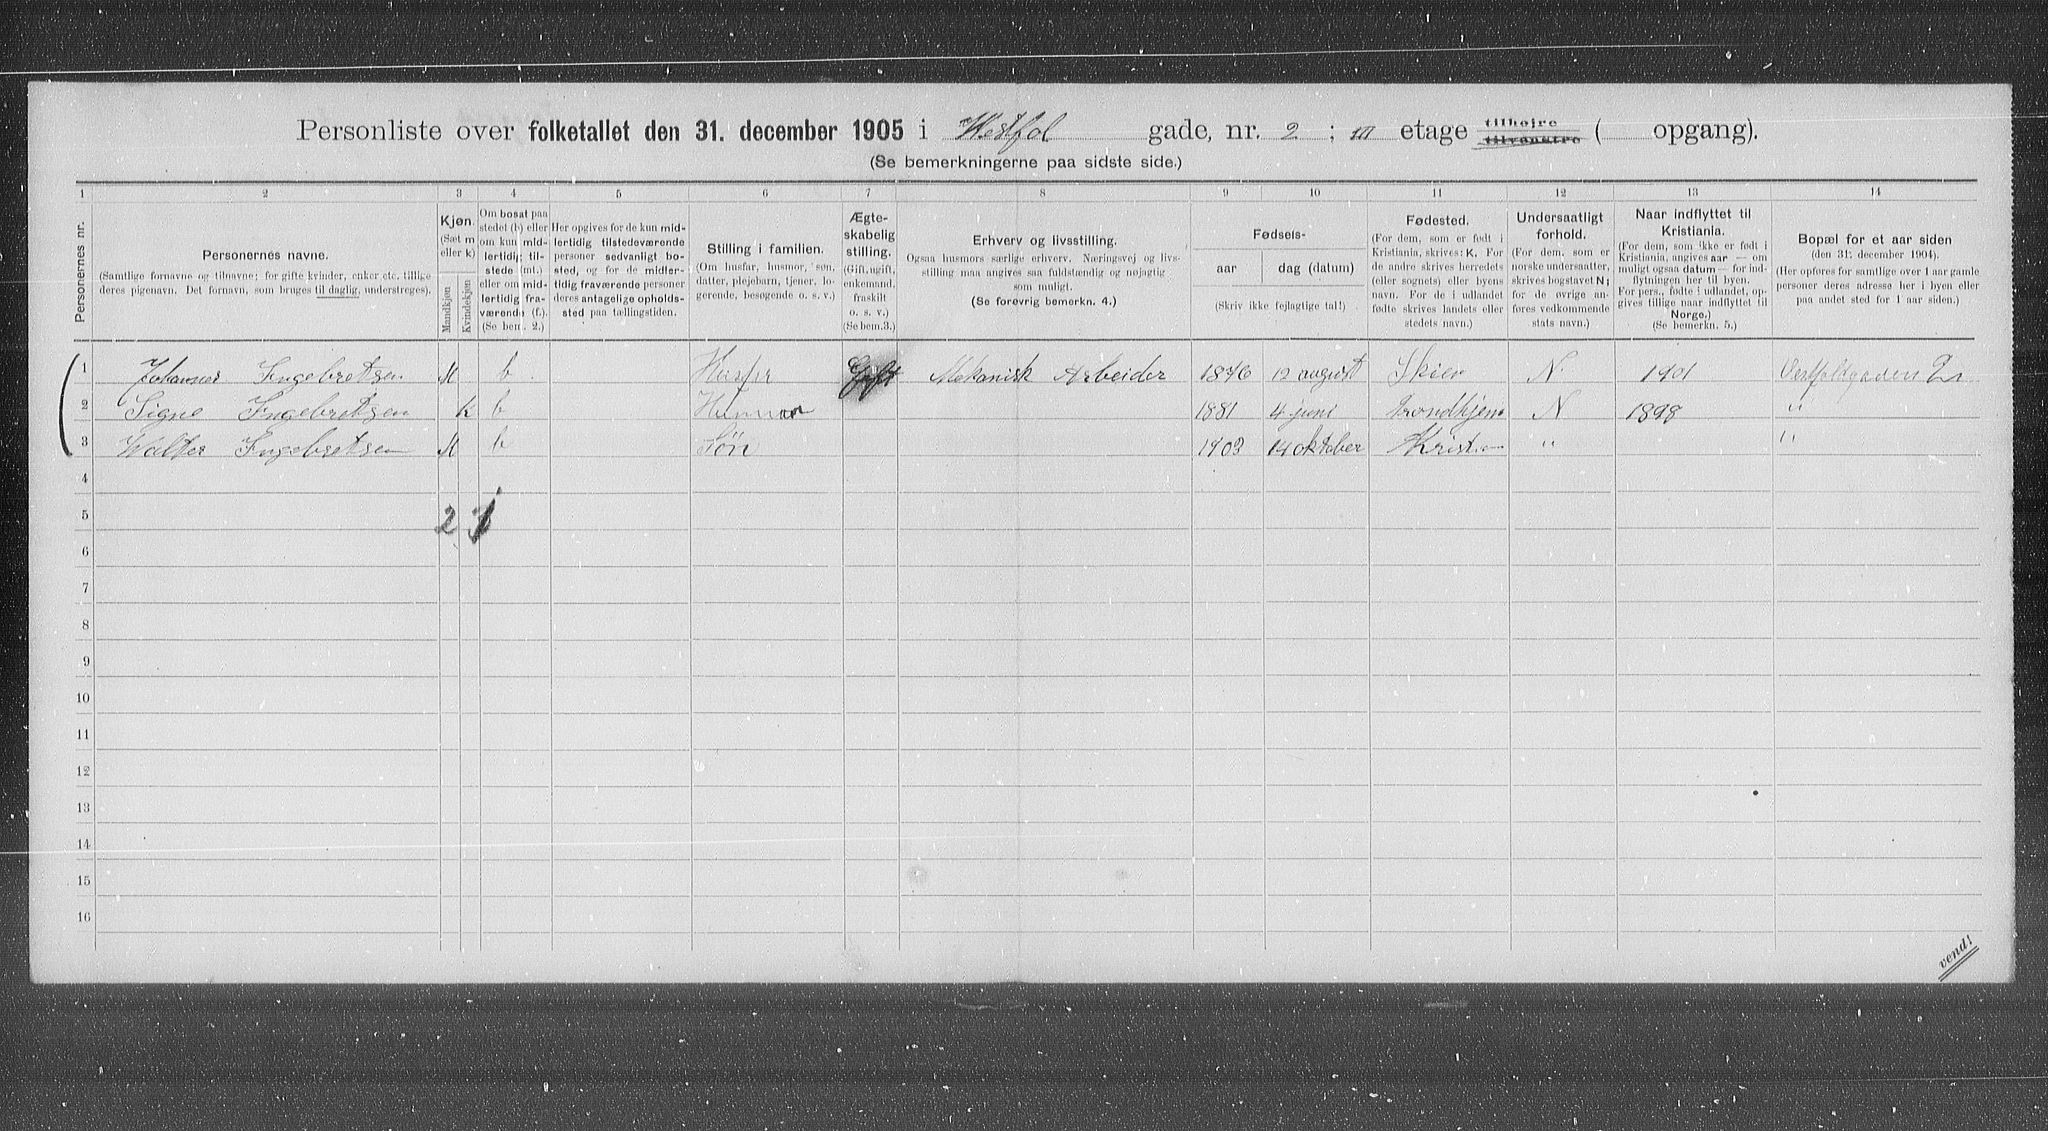 Personliste over folketallet den 31. december 1905 i Westfol gade, nr. 2 ; III etage tilhøjre tilvenstre ( opgang).
(Se bemerkningerne paa sidste side.)
1 2 3 4 5 6 7 8 9 10 11 12 13 14
Personernes nr.
Personernes navne.
(Samtlige fornavne og tilnavne; for gifte kvinder, enker etc. tillige
deres pigenavn. Det fornavn, som bruges til daglig, understreges).
Kjøn.
(Sæt m
eller k)
Mandkjøn
Kvindekjøn
Om bosat paa
stedet (b) eller
om kun mid-
lertidig; til-
stede (mt.)
eller om mid-
lertidig fra-
værende (f.).
(Se bem. 2.)
Her opgives for de kun mid-
lertidig tilstedeværende
personer sedvanligt bo-
sted, og for de midler-
tidig fraværende personer
deres antagelige opholds-
sted paa tællingstiden.
Stilling i familien.
(Om husfar, husmor, søn,
datter, plejebarn, tjener, lo-
gerende, besøgende o. s. v.)
Ægte-
skabelig
stilling.
(Gift, ugift,
enkemand,
fraskilt
o. s. v.)
(Se bem. 3.)
Erhverv og livsstilling.
Ogsaa husmors særlige erhverv. Næringsvej og livs-
stilling maa angives saa fuldstændig og nøjagtig
som muligt.
(Se forøvrig bemerkn. 4.)
Fødsels-
aar dag (datum)
(Skriv ikke fejlagtige tal!)
Fødested.
(For dem, som er født i
Kristiania, skrives: K. For
de andre skrives herredets
(eller sognets) eller byens
navn. For de i udlandet
fødte skrives landets eller
stedets navn.)
Undersaatligt
forhold.
(For dem, som er
norske undersaatter,
skrives bogstavet N;
for de øvrige an-
føres vedkommende
stats navn.)
Naar indflyttet til
Kristiania.
(For dem, som ikke er født i
Kristiania, angives aar — om
muligt ogsaa datum — for ind-
flytningen her til byen.
For pers., fødte i udlandet, op-
gives tillige naar indflyttet til
Norge.)
(Se bemerkn. 5.)
Bopæl for et aar siden
(den 31te december 1904).
(Her opføres for samtlige over 1 aar gamle
personer deres adresse her i byen eller
paa andet sted for 1 aar siden.)
1 Johannes Ingebretsen M b Husfar Gift Mekanisk Arbeider 1876 12 august Skien N 1901 Vestfoldgaden 2
2 Signe Ingebretsen K b Husmor 1881 4 juni Trondhjem N 1898 "
3 Walter Ingebretsen M b Søn 1903 14 oktober Kristian " "
4
5 2 1
6
7
8
9
10
11
12
13
14
15
16
vend!